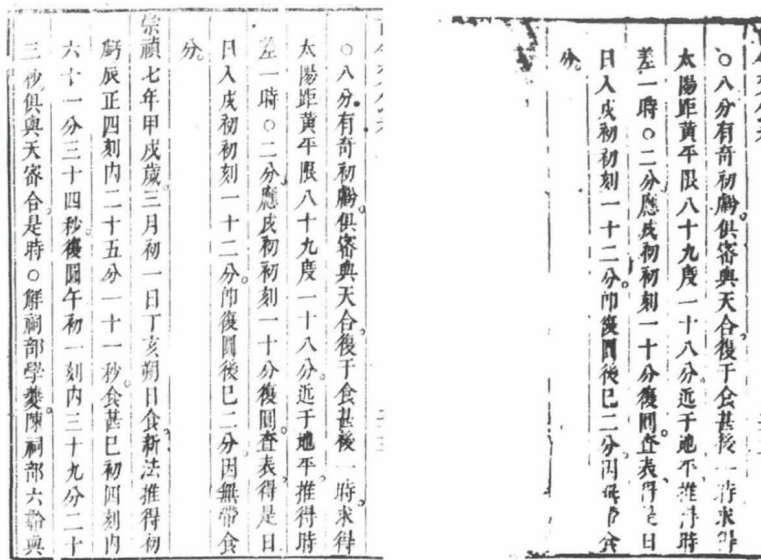 ○八分有奇初虧俱審與天合復于食甚後一時求得
太陽距黃平限八十九度一十八分近于地平推得時
差一時○二分應戌初初刻一十分復圓查表得是日
日入戌初初刻一十二分卽復圓後已二分因無帶食
分
崇禎七年甲戌歲三月初一日丁亥朔日食新法推得初
虧辰正四刻內二十五分一十一秒食甚巳初四刻內
六十一分三十四秒復圓午初一刻內三十九分二十
三秒俱與天審合是時○解祠部學夔陳祠部六韐與
○八分有奇初虧俱審與天合復于食甚後一時求得
太陽距黃平限八十九度一十八分近于地平推得時
差一時○二分應戌初初刻一十分復圓查表得是日
日入戌初初刻一十二分卽復圓後已二分因無帶食
分